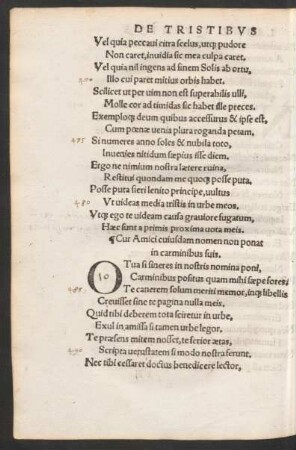 DE TRISTIBVS
Vel quia peccaui citra scelus, utq; pudore
Non caret, inuidia sic mea culpa caret.
Vel quia nil ingens ad finem Solis ab ortu,
Illo cui paret mitius orbis habet.
Scilicet ut per uim non est superabilis ulli,
Molle cor ad timidas sic habet ille preces.
Exemploq; deum quibus accessurus & ipse est,
Cum pœnæ uenia plura roganda petam,
475 Si numeres anno soles & nubila toto,
Inuenies nitidum sæpius isse diem.
Ergo ne nimium nostra lætere ruina,
Restitui quondam me quoq; posse puta,
Posse puta fieri lenito principe, uultus
480 Ut uideas media tristis in urbe meos.
Vtq; ego te uideam causa grauiore fugatum,
Hæc sunt a primis proxima uota meis.
¶Cur Amici cuiusdam nomen non ponat
in carminibus suis.
O Tua si sineres in nostris nomina poni,
Carminibus positus quam mihi sæpe fores.
Te canerem solum meriti memor, inq; libellis
Creuisset sine te pagina nulla meis.
Quid tibi deberem tota sciretur in urbe,
Exul in amissa si tamen urbe legor.
Te præsens mitem nosset, te serior ætas,
Scripta uetustatem si modo nostra ferunt.
Nec tibi cessaret doctus benedicere lector,